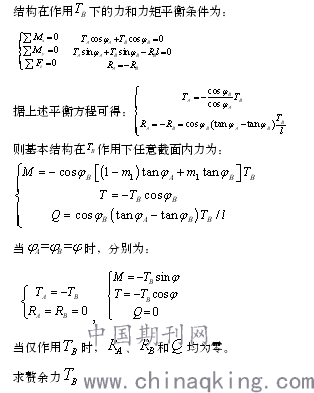 结构在作用T_B下的力和力矩平衡条件为：
{∑M_z=0 T_A cosφ_A+T_B cosφ_B=0
∑M_x=0 T_A sinφ_A+T_B sinφ_B-R_A l=0
∑F_z=0 R_A=-R_B
据上述平衡方程可得：{T_A=-cosφ_B/cosφ_A T_B
R_A=-R_B=cosφ_B(tanφ_A-tanφ_B)T_B/l
则基本结构在T_B作用下任意截面内力为：
{M=-cosφ_B[(1-m_1)tanφ_A+m_1 tanφ_B]T_B
T=-T_B cosφ_B
Q=cosφ_B(tanφ_A-tanφ_B)T_B/l
当φ_A=φ_B=φ时，分别为：
{T_A=-T_B
R_A=R_B=0
,
{M=-T_B sinφ
T=-T_B cosφ
Q=0
当仅作用T_B时，R_A、R_B和Q均为零。
求赘余力T_B
中国期刊网
www.chinaqking.com